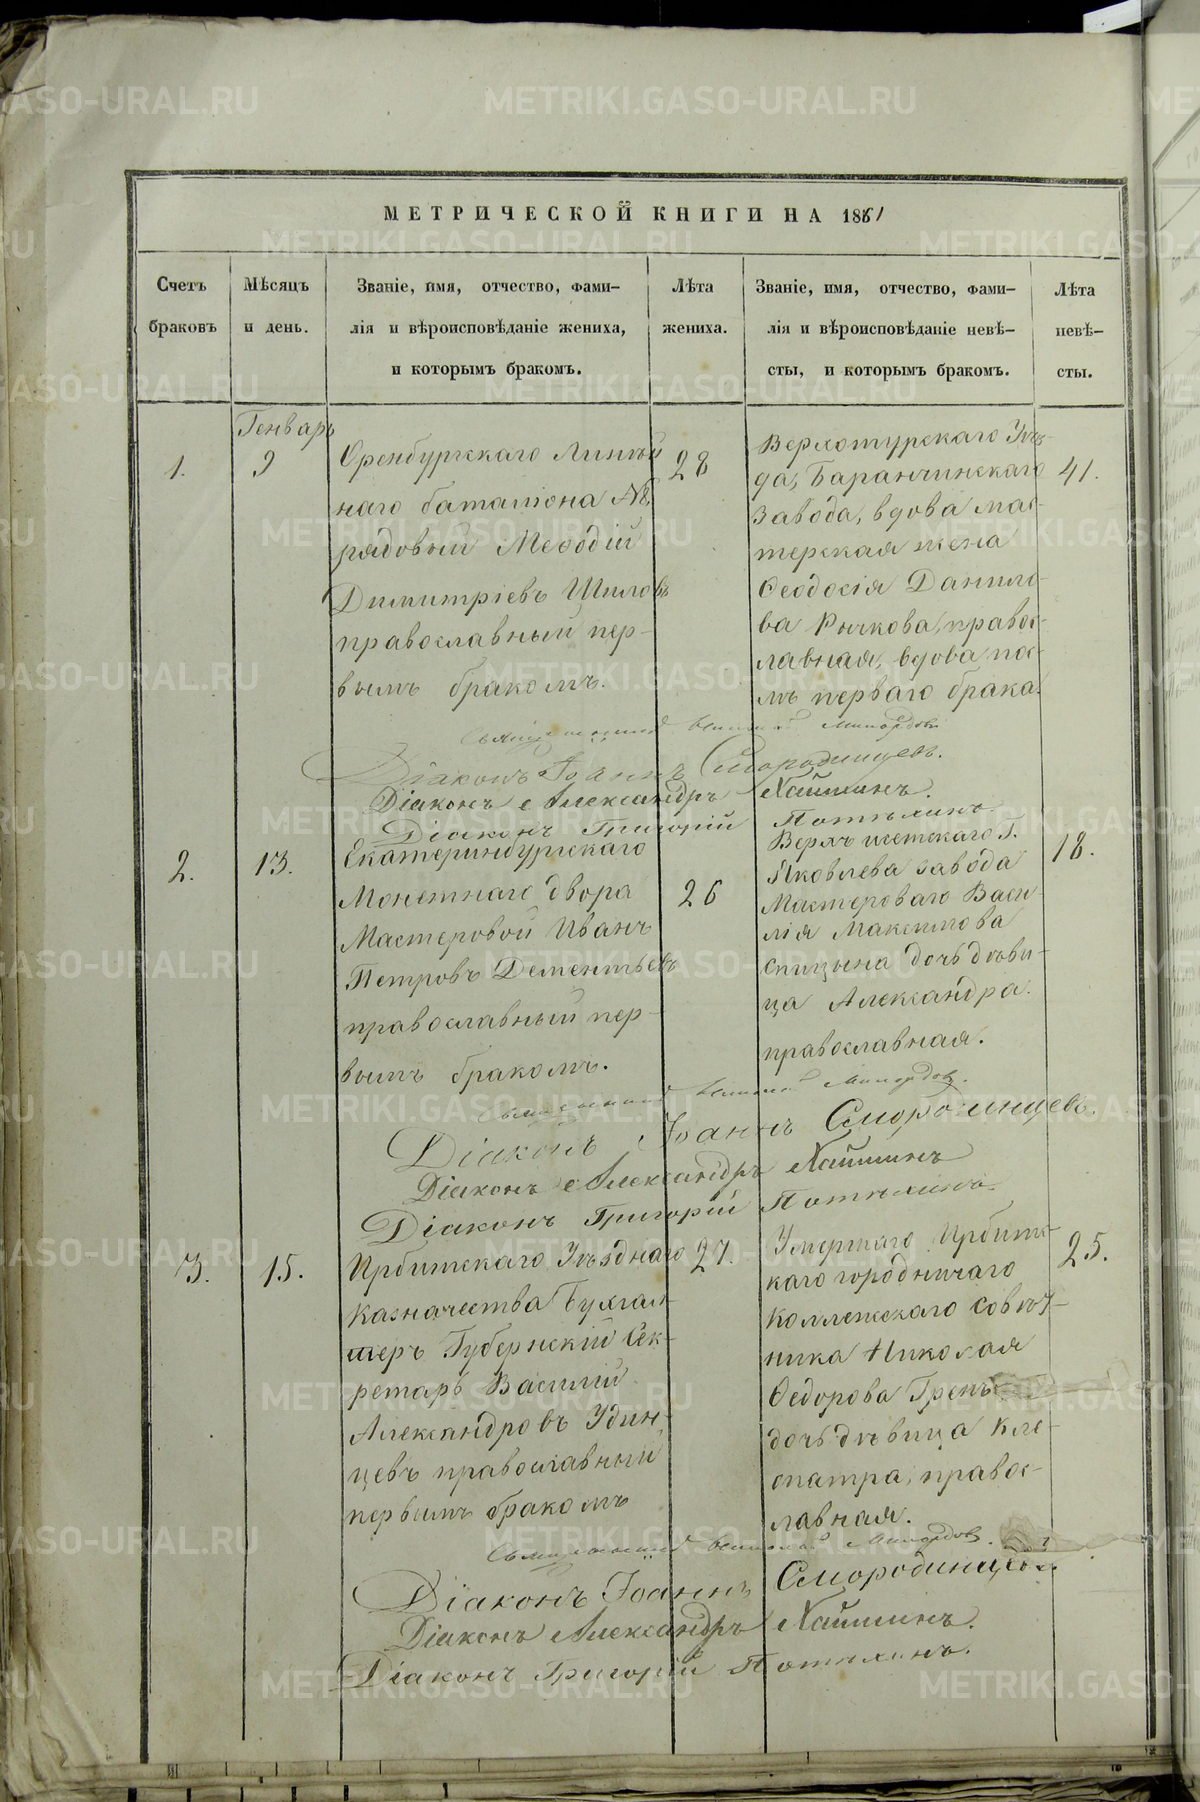 МЕТРИЧЕСКОЙ КНИГИ НА 1861
Счетъ браковъ
Мѣсяцъ и день.
Званіе, имя, отчество, фами-
лія и вѣроисповѣданіе жениха,
и которымъ бракомъ.
Лѣта жениха.
Званіе, имя, отчество, фами-
лія и вѣроисповѣданіе невѣ-
сты, и которымъ бракомъ.
Лѣта невѣ-
сты.
Генварь
1.
9
Оренбургскаго Линѣй
наго баталіона №
рядовый Меѳодій
Димитріевъ Шиловъ
православный пер-
вымъ бракомъ.
28
Верхотурскаго Уѣз-
да, Баранчинскаго
завода, вдова мас-
терская жена
Ѳеодосія Данило-
ва Рычкова, правос-
лавная, вдова пос-
лѣ перваго брака.
41.
Діаконъ Іоаннъ Смородинцевъ.
Діаконъ Александръ Хайминъ.
Діаконъ Григорій Потѣхинъ.
2.
13.
Екатеринбургскаго
Монетнаго двора
Мастеровой Иванъ
Петровъ Дементьевъ
православный пер-
вымъ бракомъ.
26
Верхъ исетскаго Г.
Яковлева завода
Мастероваго Васи-
лія Максимова
Спицына дочь дѣви-
ца Александра.
православная.
18.
Діаконъ Іоаннъ Смородинцевъ.
Діаконъ Александръ Хайминъ
Діаконъ Григорій Потѣхинъ.
3.
15.
Ирбитскаго Уѣзднаго
Казначества Бухгал-
теръ Губернскій Сек-
ретарь Василій
Александровъ Удин-
цевъ православный
первымъ бракомъ
27.
Умершаго Ирбитс-
каго городничаго
Коллежскаго Совѣт-
ника Николая
Ѳедорова Гренъ
дочь дѣвица Кле-
опатра, правос-
лавная.
25.
Діаконъ Іоаннъ Смородинцевъ.
Діаконъ Александръ Хайминъ.
Діаконъ Григорій Потѣхинъ.
METRIKI.GASO-URAL.RU